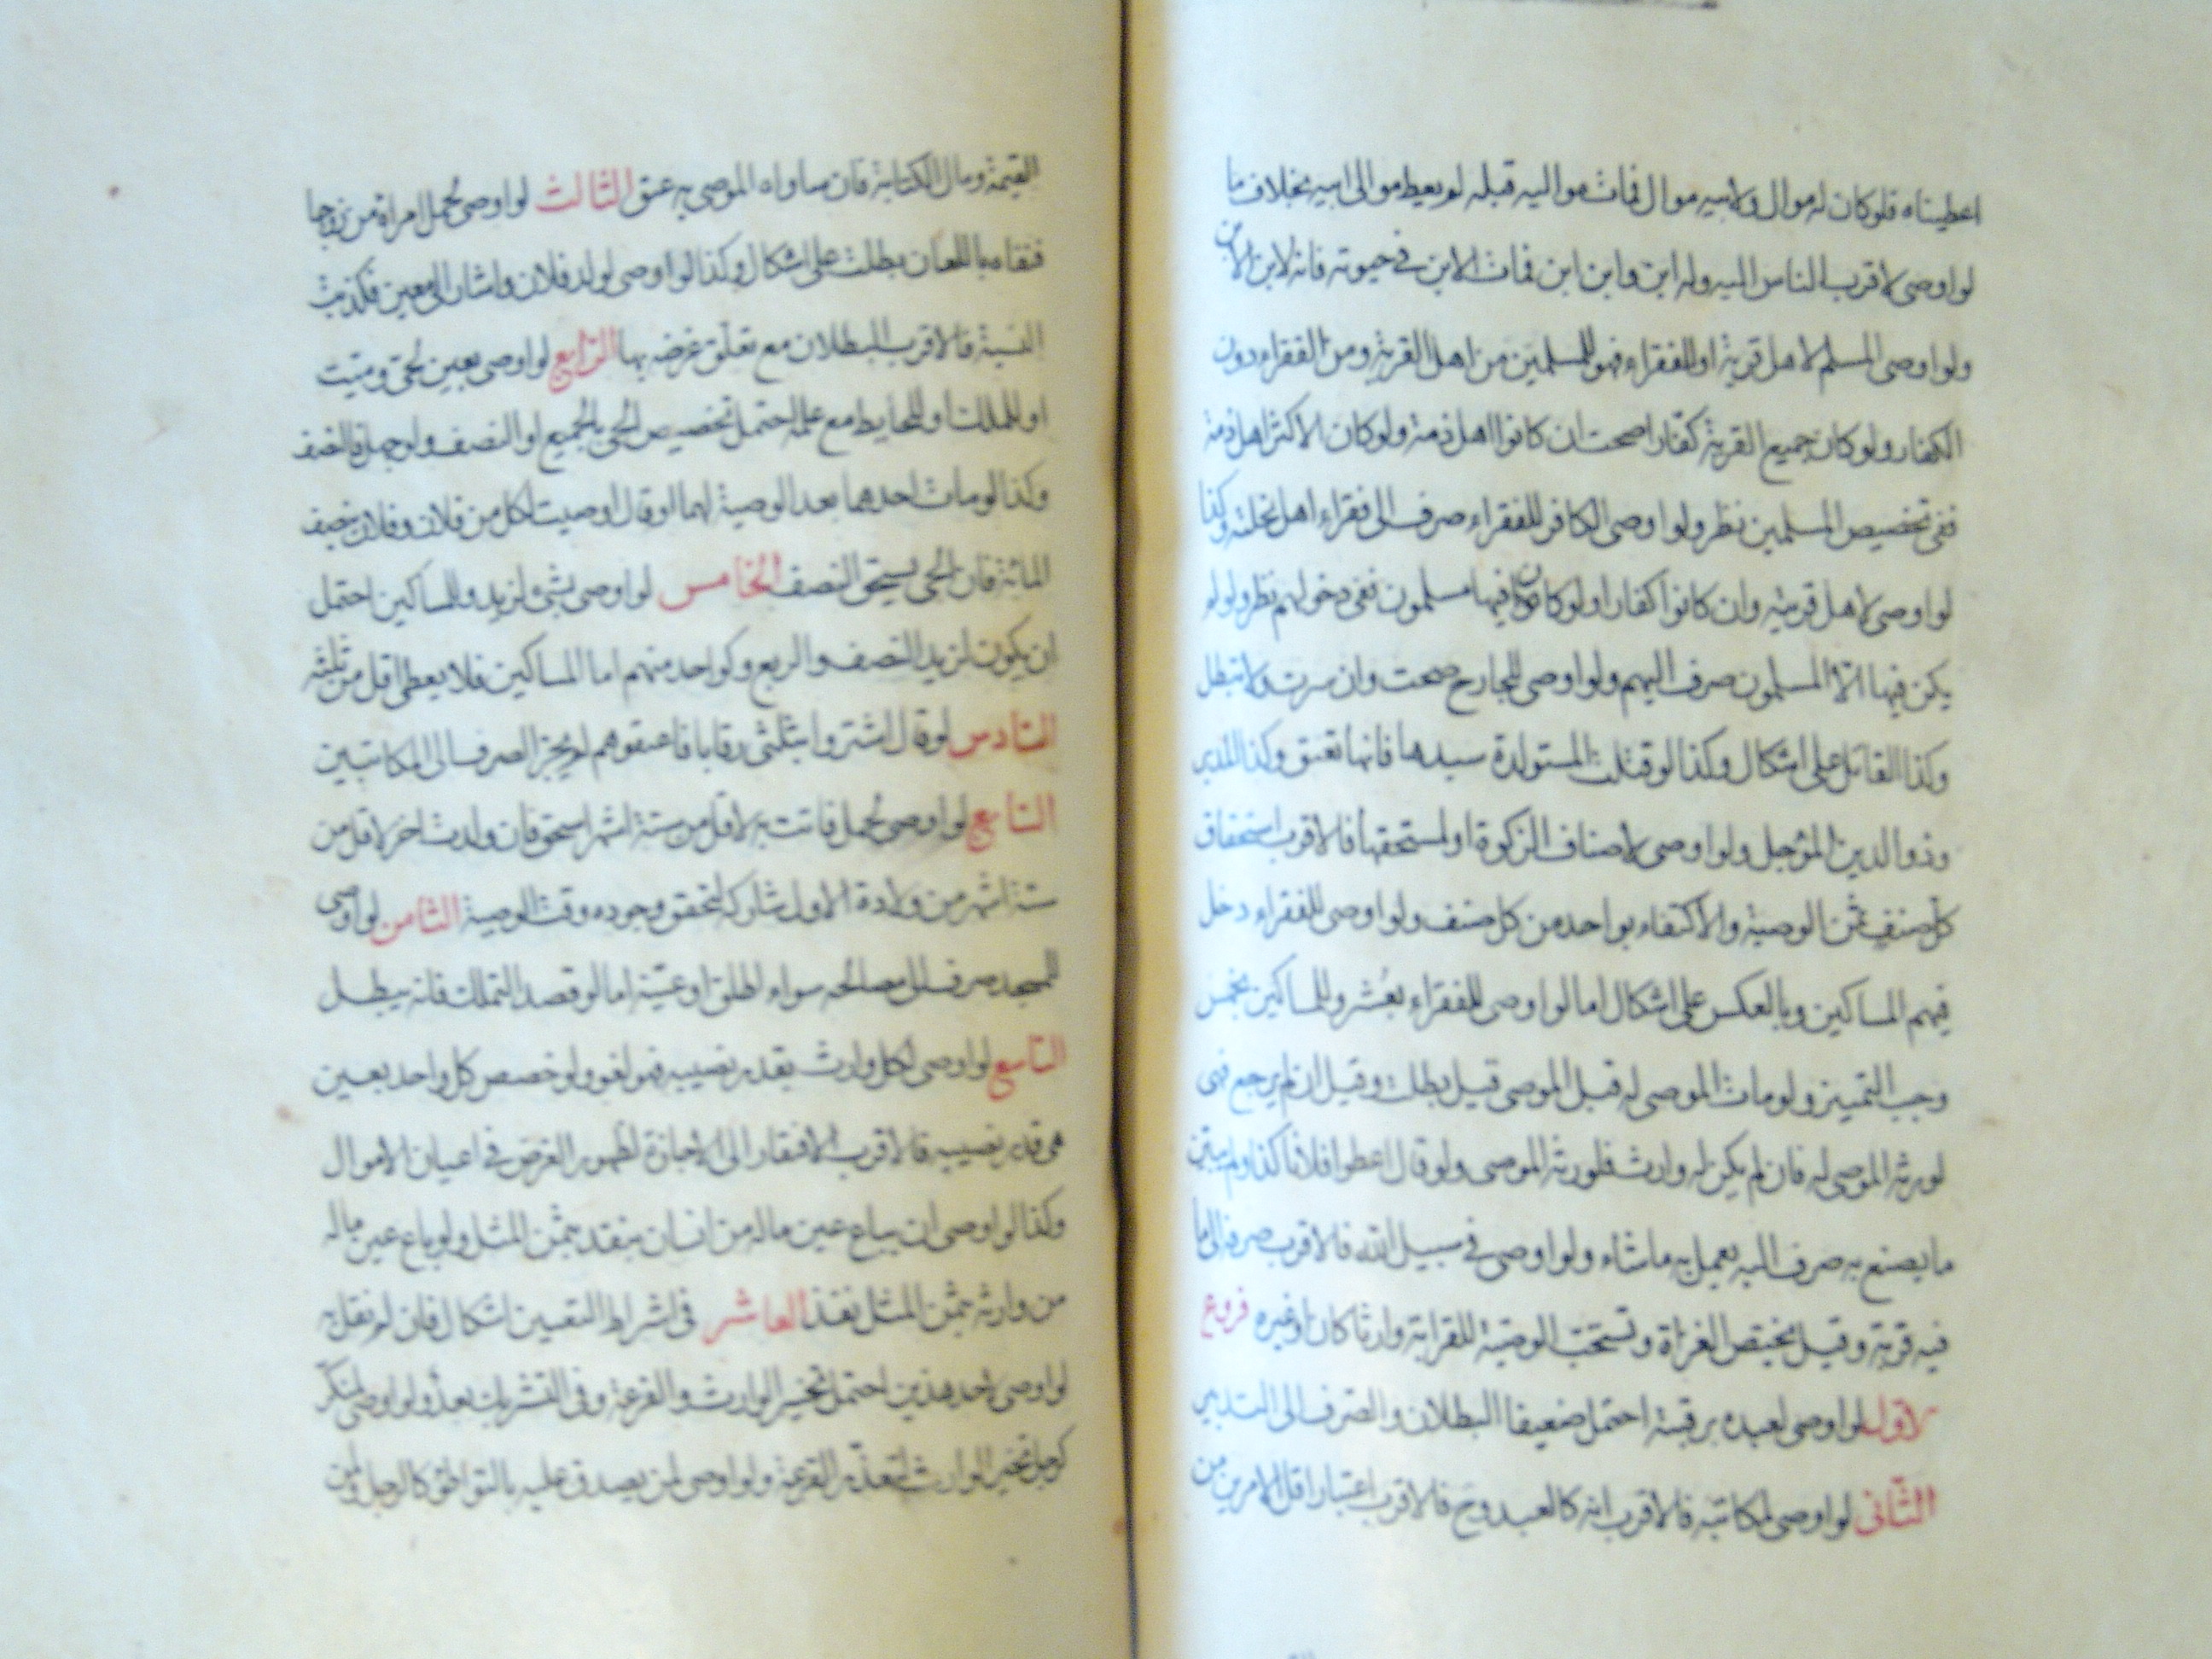 اعطيناه فلو كان له موال ولابيه موال فمات مواليه قبله لم يعط موالى ابيه بخلاف ما
لو اوصى لاقرب الناس اليه وله ابن وابن ابن فمات الابن فى حيوته فانه لابن الابن
ولو اوصى المسلم لاهل قرية او للفقراء فهو للمسلمين من اهل القرية ومن الفقراء دون
الكفار ولو كان جميع القرية كفارا صحت ان كانوا اهل ذمة ولو كان الاكثر اهل ذمة
ففى تخصيص المسلمين نظر ولو اوصى الكافر للفقراء صرف الى فقراء اهل نحلته وكذا
لو اوصى لاهل قريته وان كانوا كفارا ولو كان فيها مسلمون ففى دخولهم نظر ولو لم
يكن فيها الا المسلمون صرف اليهم ولو اوصى للجارح صحت وان سرت ولا تبطل
وكذا القاتل على اشكال وكذا لو قتلت المستولدة سيدها فانها تعتق وكذا المدبر
وذو الدين المؤجل ولو اوصى لاصناف الزكوة او لمستحقها فالاقرب استحقاق
كل صنف ثمن الوصية والاكتفاء بواحد من كل صنف ولو اوصى للفقراء دخل
فيهم المساكين وبالعكس على اشكال اما لو اوصى للفقراء بعشر وللمساكين بخمس
وجب التمييز ولو مات الموصى له قبل الموصى قيل بطلت وقيل ان لم يرجع فهى
لورثة الموصى له فان لم يكن له وارث فلورثة الموصى ولو قال اعطوا فلانا كذا ولم يبين
ما يصنع به صرف اليه يعمل به ما شاء ولو اوصى فى سبيل الله فالاقرب صرفه الى ما
فيه قربة وقيل يختص الغزاة وتستحب الوصية للقرابة وارثا كان او غيره فروع
الاول لو اوصى لعبده برقبته احتمل ضعيفا البطلان والصرف الى التدبير
الثانى لو اوصى لمكاتبه فالاقرب انه كالعبد وح فالاقرب اعتبار اقل الامرين من
القيمة ومال الكتابة فان ساواه الموصى به عتق الثالث لو اوصى لحمل امراة من زوجها
فنفاه باللعان بطلت على اشكال وكذا لو اوصى لولد فلان واشار الى معين فكذبت
النسبة فالاقرب البطلان مع تعلق غرضه بها الرابع لو اوصى بعين لحى وميت
او للملك او للحايط مع علمه احتمل تخصيص الحى بالجميع او النصف ولو جهل فالنصف
وكذا لو مات احدهما بعد الوصية لهما او قال اوصيت لكل من فلان وفلان بنصف
المائة فان الحى يستحق النصف الخامس لو اوصى بشئ لزيد وللمساكين احتمل
ان يكون لزيد النصف والربع وكواحد منهم اما المساكين فلا يعطى اقل من ثلثة
السادس لو قال اشتروا بثلثى رقابا فاعتقوهم لم يجز الصرف الى المكاتبين
السابع لو اوصى لحمل فاتت به لاقل من ستة اشهر استحق فان ولدت اخر لاقل من
ستة اشهر من ولادة الاول شاركه لتحقق وجوده وقت الوصية الثامن لو اوصى
للمسجد صرف الى مصالحه سواء اطلق او عينه اما لو قصد التملك فانه يبطل
التاسع لو اوصى لكل وارث بقدر نصيبه فهو لغو ولو خصص كل واحد بعين
هى قدر نصيبه فالاقرب الافتقار الى الاجازة لظهور الغرض فى اعيان الاموال
وكذا لو اوصى ان يباع عين ماله من انسان بنقد بثمن المثل ولو باع عين ماله
من وارثه بثمن المثل نفذ العاشر فى اشتراط التعيين اشكال فان لم نقل به
لو اوصى لاحد هذين احتمل تخير الوارث والقرعة وفى التشريك بعد ولو اوصى لمنكر
كرجل تخير الوارث لتعذر القرعة ولو اوصى لمن يصدق عليه بالتواطؤ كالرجل ولمن